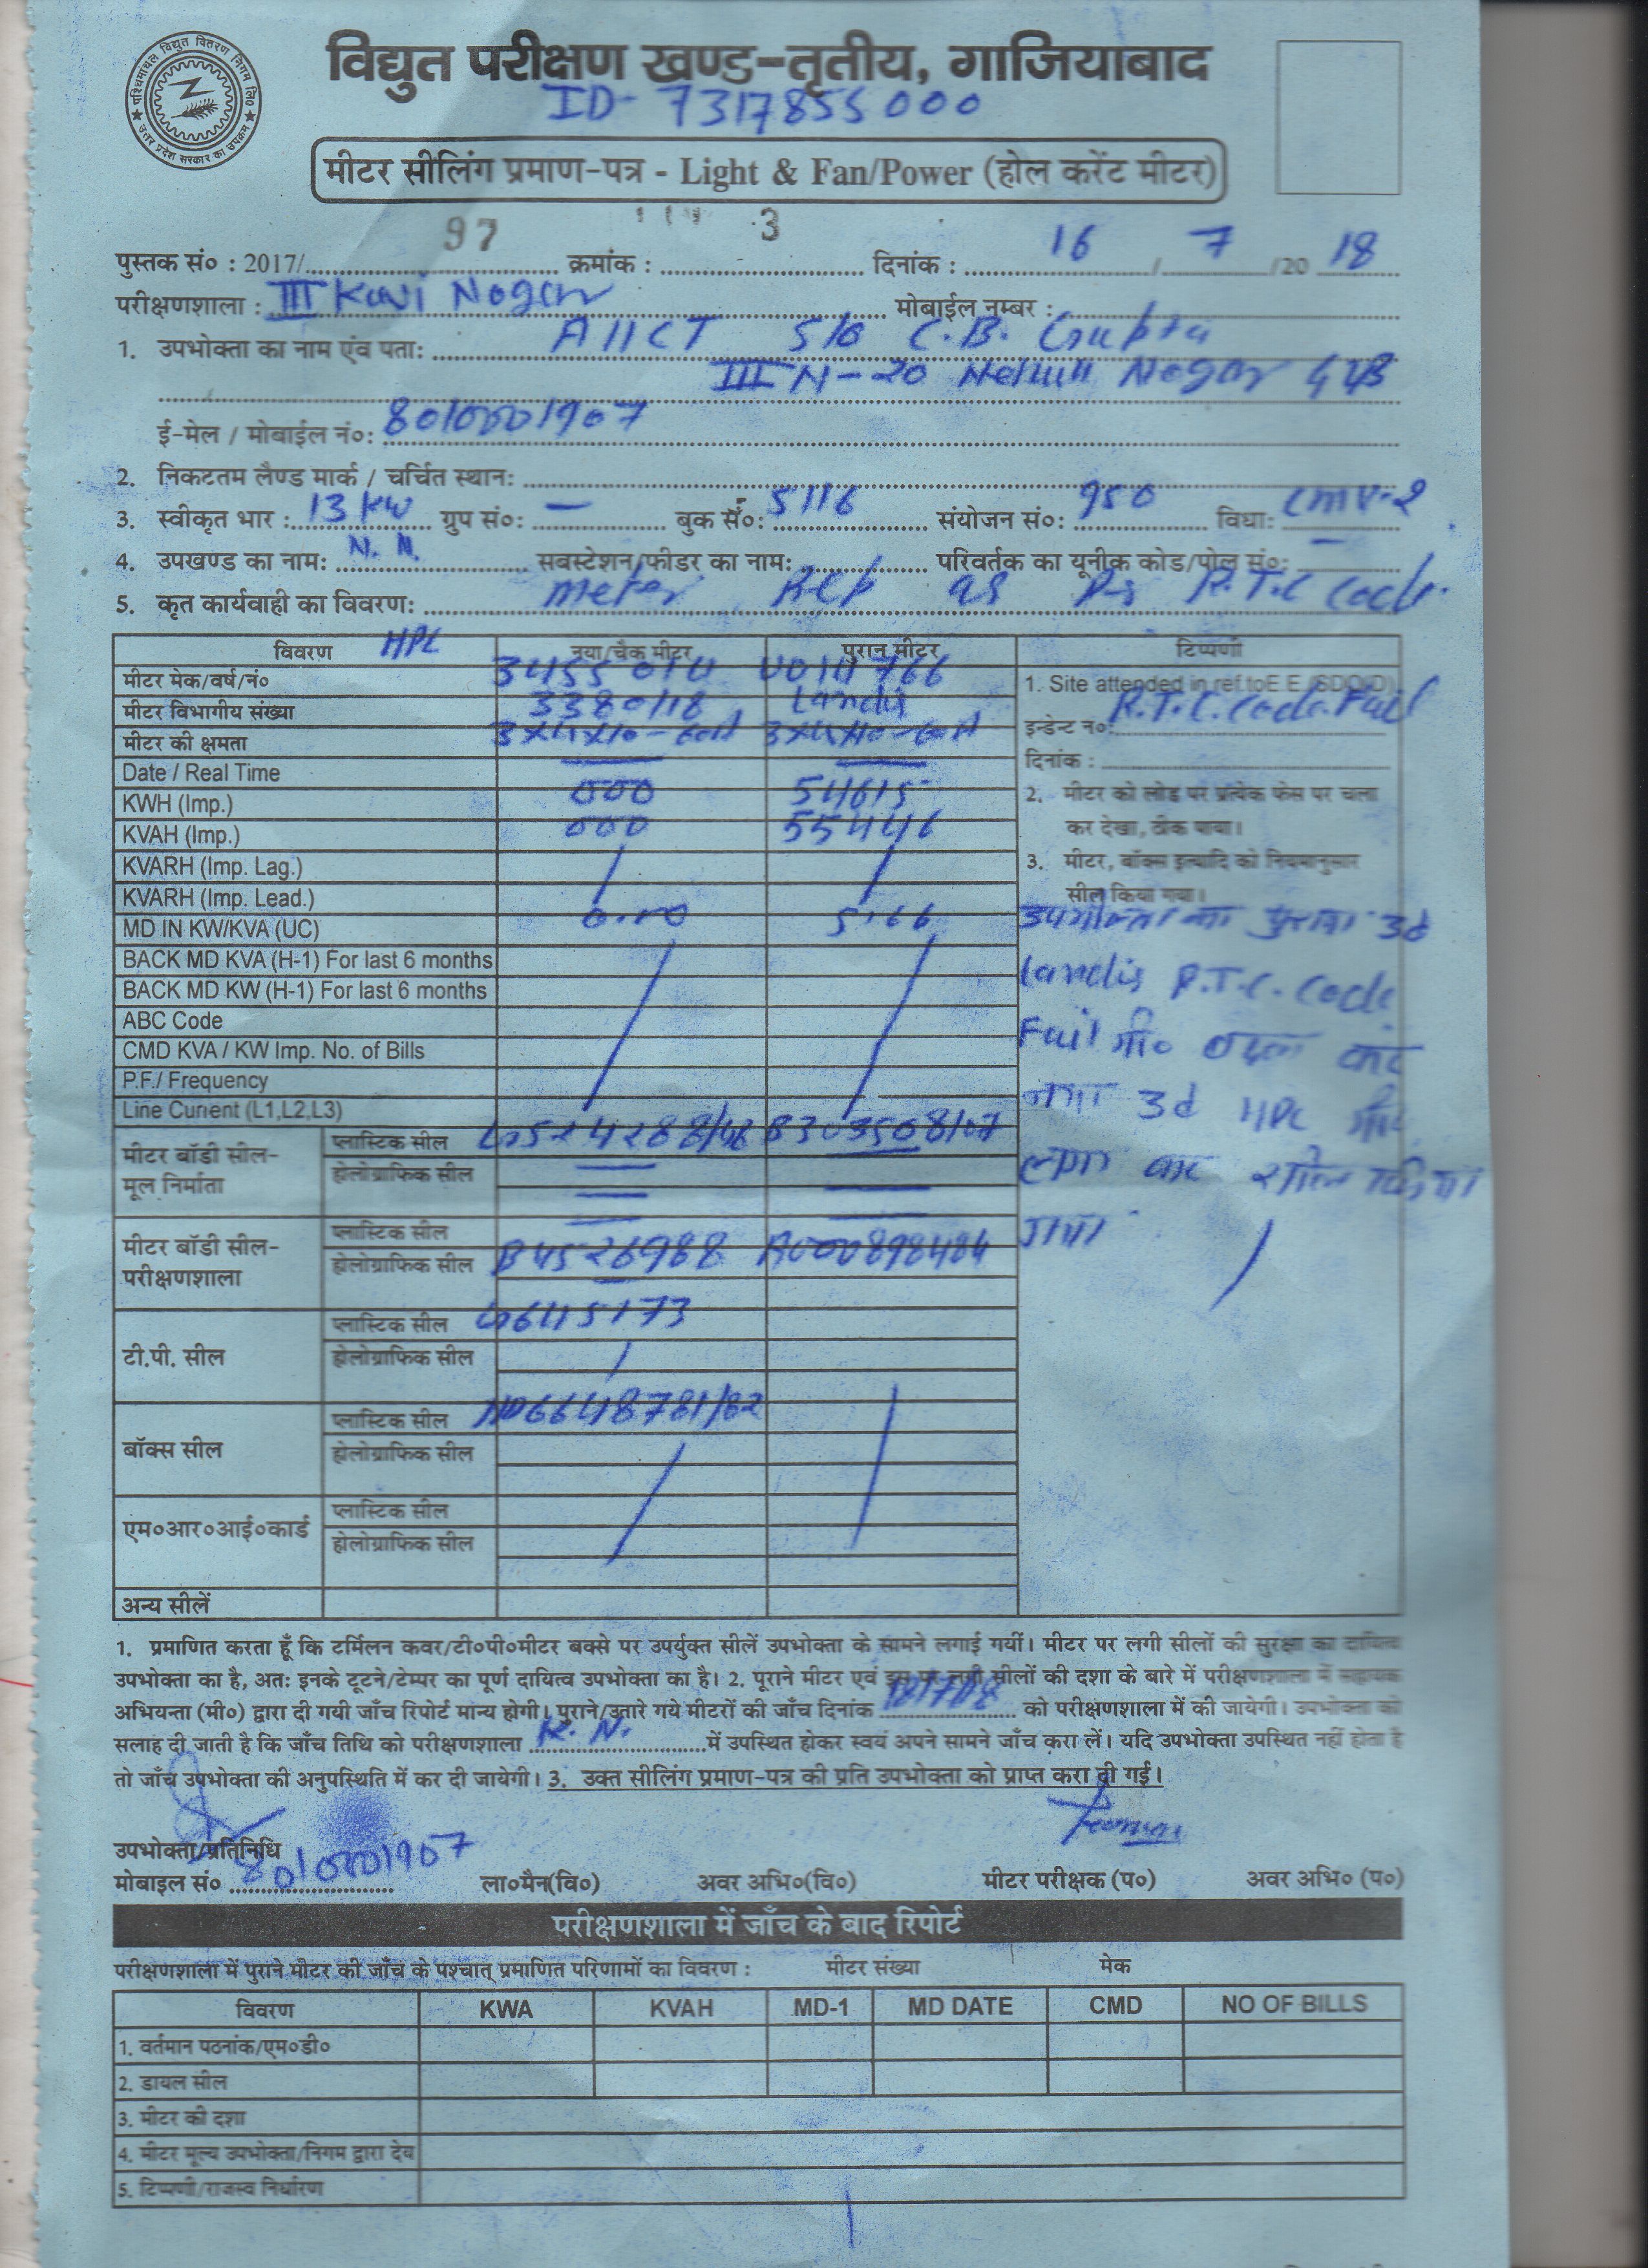 पश्चिमांचल विद्युत वितरण निगम लि०
उत्तर प्रदेश सरकार का उपक्रम
विद्युत परीक्षण खण्ड-तृतीय, गाजियाबाद
ID- 7317855000
मीटर सीलिंग प्रमाण-पत्र - Light & Fan/Power (होल करेंट मीटर)
पुस्तक सं० : 2017/ 97 क्रमांक : 3 दिनांक : 16 / 7 /20 18
परीक्षणशाला : III Kavi Nagar मोबाईल नम्बर :
1. उपभोक्ता का नाम एंव पता: AIICT S/o C.B. Gupta
III N-20 Nehru Nagar GZB
ई-मेल / मोबाईल नं०: 8010001907
2. निकटतम लैण्ड मार्क / चर्चित स्थान:
3. स्वीकृत भार : 13 KW ग्रुप सं०: — बुक सं०: 5116 संयोजन सं०: 950 विधा: LMV-2
4. उपखण्ड का नाम: N. N. सबस्टेशन/फीडर का नाम: परिवर्तक का यूनीक कोड/पोल सं०: —
5. कृत कार्यवाही का विवरण: meter Rep as Per R.T.C Code.
विवरण HPL नया/चैक मीटर पुरान मीटर टिप्पणी
मीटर मेक/वर्ष/नं०
1. Site attended in ref.toE.E.(SDO/D)
मीटर विभागीय संख्या 3380/18 Landis
R.T.C. Code Fail
मीटर की क्षमता 3x4x10-60A 3x4x10-60A
इन्डेन्ट नं०:
Date / Real Time — —
दिनांक :
KWH (Imp.) 000 54615
2. मीटर को लोड पर प्रत्येक फेस पर चला
KVAH (Imp.) 000 55446
कर देखा, ठीक पाया।
KVARH (Imp. Lag.)
3. मीटर, बॉक्स इत्यादि को नियमानुसार
KVARH (Imp. Lead.)
सील किया गया।
MD IN KW/KVA (UC) 0.00 5.66
उपभोक्ता का पुराना 3d
BACK MD KVA (H-1) For last 6 months
Landis R.T.C. Code
BACK MD KW (H-1) For last 6 months
ABC Code
Fail मी० बदल कर
CMD KVA / KW Imp. No. of Bills
P.F./ Frequency
नया 3d HPL मी०
Line Current (L1,L2,L3)
मीटर बॉडी सील-
मूल निर्माता
प्लास्टिक सील
होलोग्राफिक सील — —
लगा कर सील किया
गया
मीटर बॉडी सील-
परीक्षणशाला
प्लास्टिक सील — —
होलोग्राफिक सील B4526988
टी.पी. सील
प्लास्टिक सील
होलोग्राफिक सील
बॉक्स सील
प्लास्टिक सील
होलोग्राफिक सील
एम०आर०आई०कार्ड
प्लास्टिक सील
होलोग्राफिक सील
अन्य सीलें
1. प्रमाणित करता हूँ कि टर्मिलन कवर/टी०पी०मीटर बक्से पर उपर्युक्त सीलें उपभोक्ता के सामने लगाई गयीं। मीटर पर लगी सीलों की सुरक्षा का दायित्व
उपभोक्ता का है, अतः इनके टूटने/टेम्पर का पूर्ण दायित्व उपभोक्ता का है। 2. पूराने मीटर एवं इस पर लगी सीलों की दशा के बारे में परीक्षणशाला में सहायक
अभियन्ता (मी०) द्वारा दी गयी जाँच रिपोर्ट मान्य होगी। पुराने/उतारे गये मीटरों की जाँच दिनांक 18/7/18 को परीक्षणशाला में की जायेगी। उपभोक्ता को
सलाह दी जाती है कि जाँच तिथि को परीक्षणशाला K. N. में उपस्थित होकर स्वयं अपने सामने जाँच करा लें। यदि उपभोक्ता उपस्थित नहीं होता है
तो जाँच उपभोक्ता की अनुपस्थिति में कर दी जायेगी। 3. उक्त सीलिंग प्रमाण-पत्र की प्रति उपभोक्ता को प्राप्त करा दी गई।
उपभोक्ता/प्रतिनिधि
मोबाइल सं० 8010001907 ला०मैन(वि०) अवर अभि०(वि०) मीटर परीक्षक (प०) अवर अभि० (प०)
परीक्षणशाला में जाँच के बाद रिपोर्ट
परीक्षणशाला में पुराने मीटर की जाँच के पश्चात् प्रमाणित परिणामों का विवरण : मीटर संख्या मेक
विवरण KWA KVAH MD-1 MD DATE CMD NO OF BILLS
1. वर्तमान पठनांक/एम०डी०
2. डायल सील
3. मीटर की दशा
4. मीटर मूल्य उपभोक्ता/निगम द्वारा देय
5. टिप्पणी/राजस्व निर्धारण